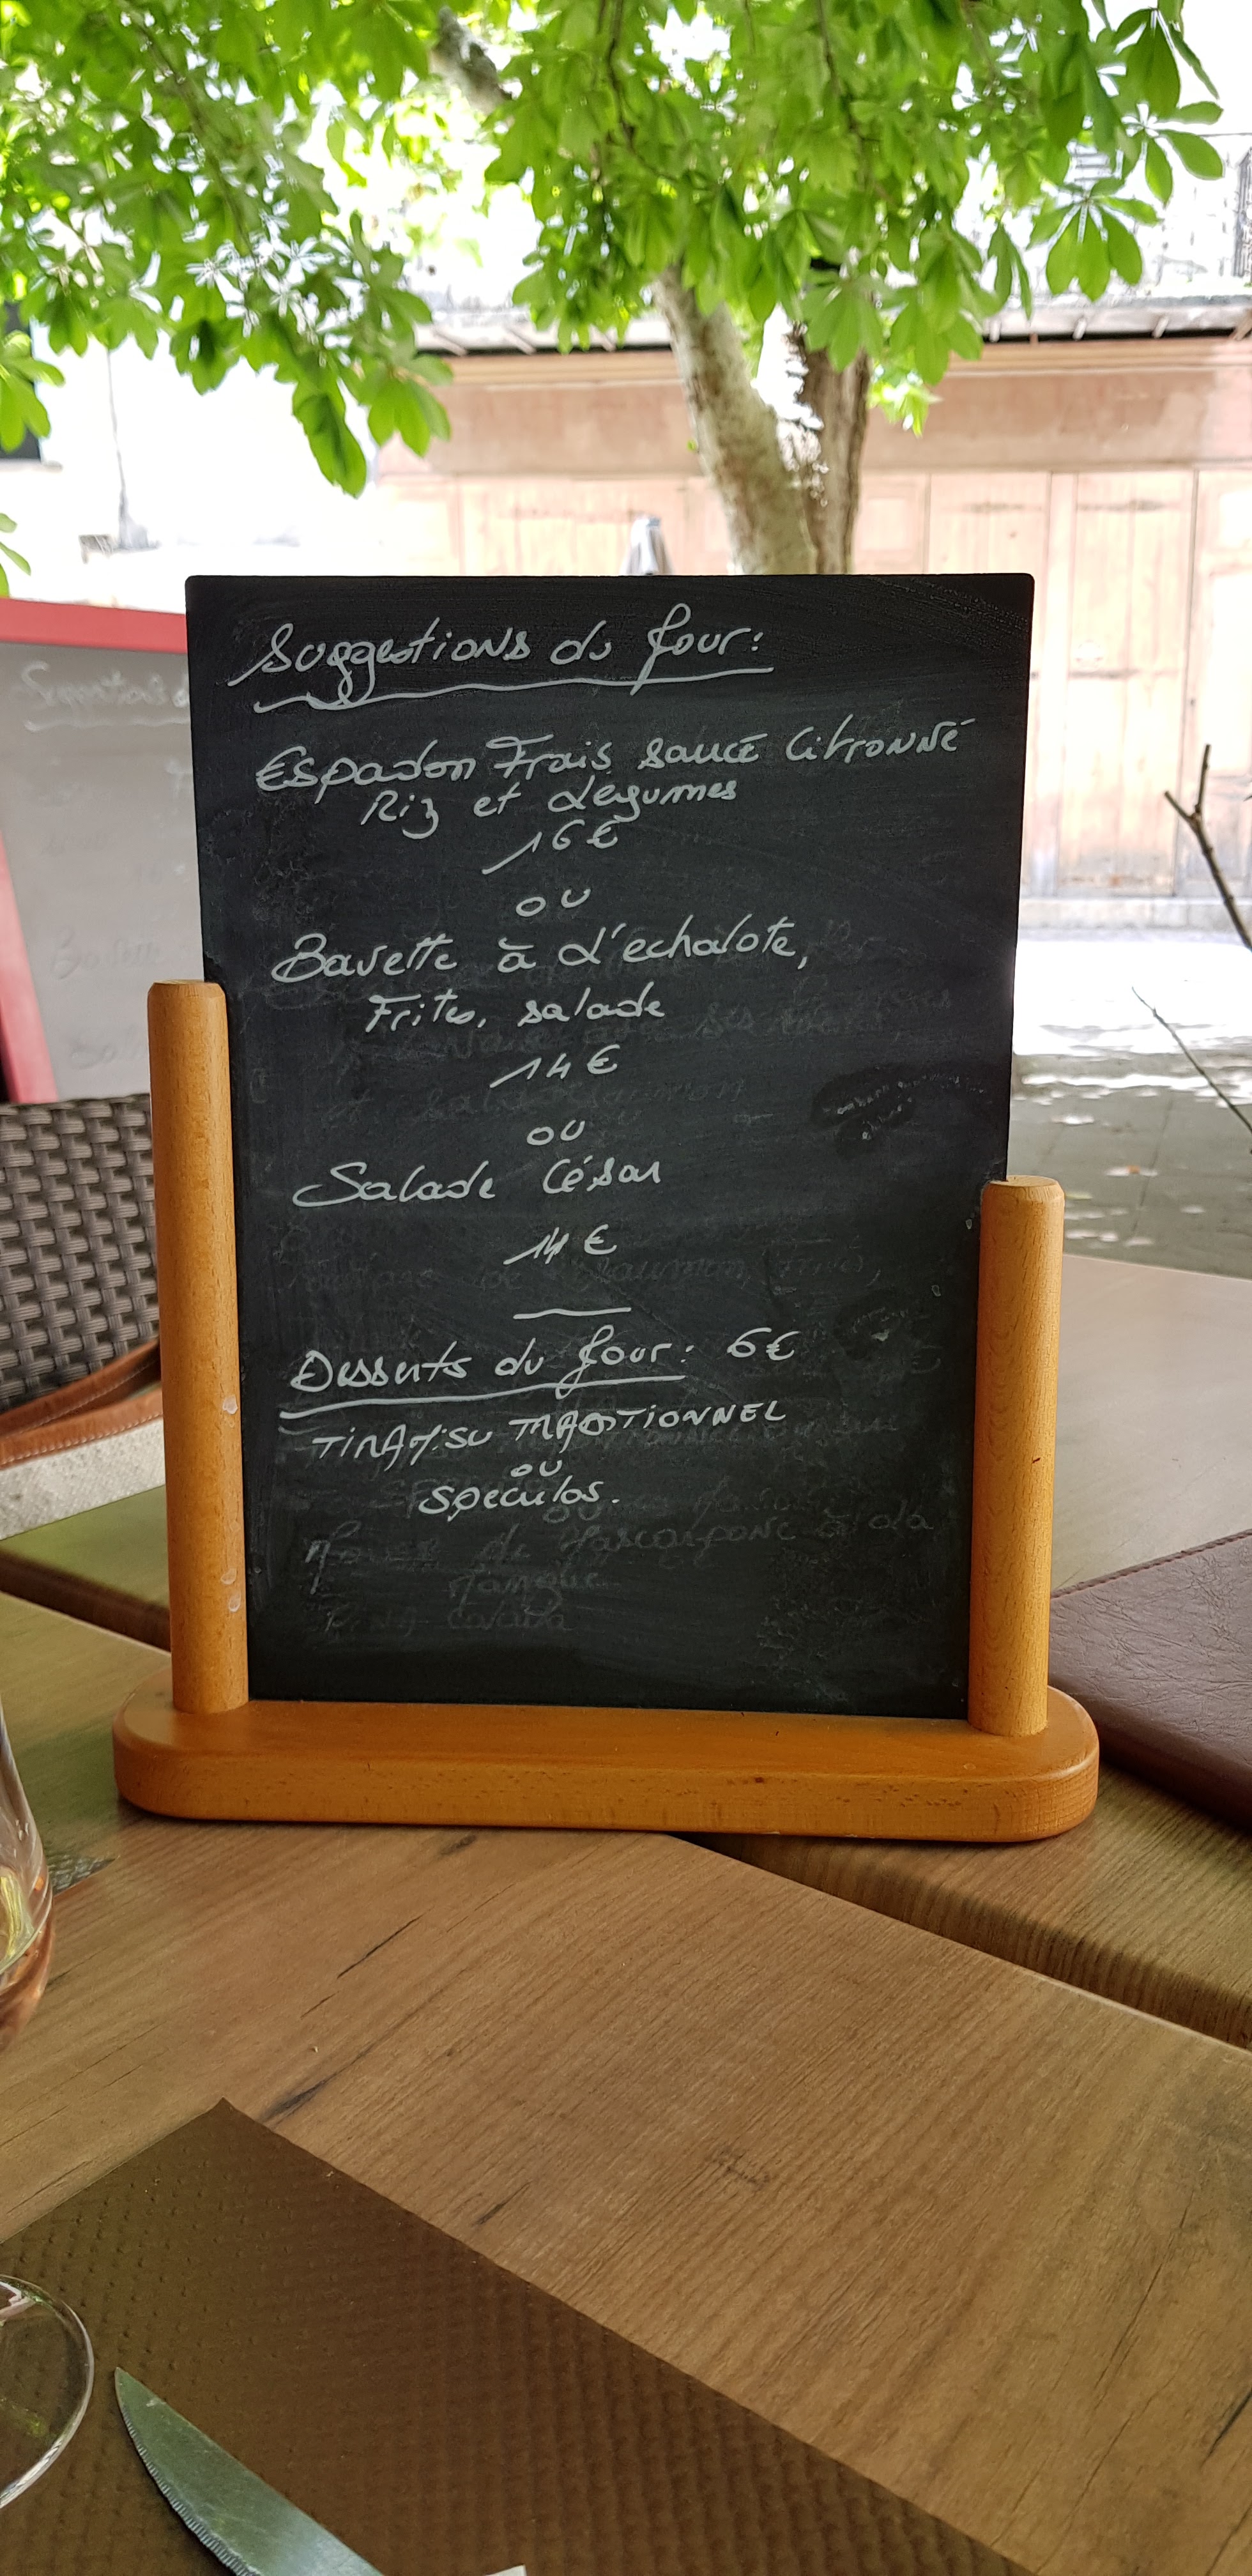 Suggestions du Jour:
Espadon Frais sauce Citronné
Riz et Légumes
16€
ou
Bavette à L'echalote,
Frites, salade
14€
ou
Salade César
14€
Desserts du Jour: 6€
TIRAMISU TRADITIONNEL
ou
Speculos.